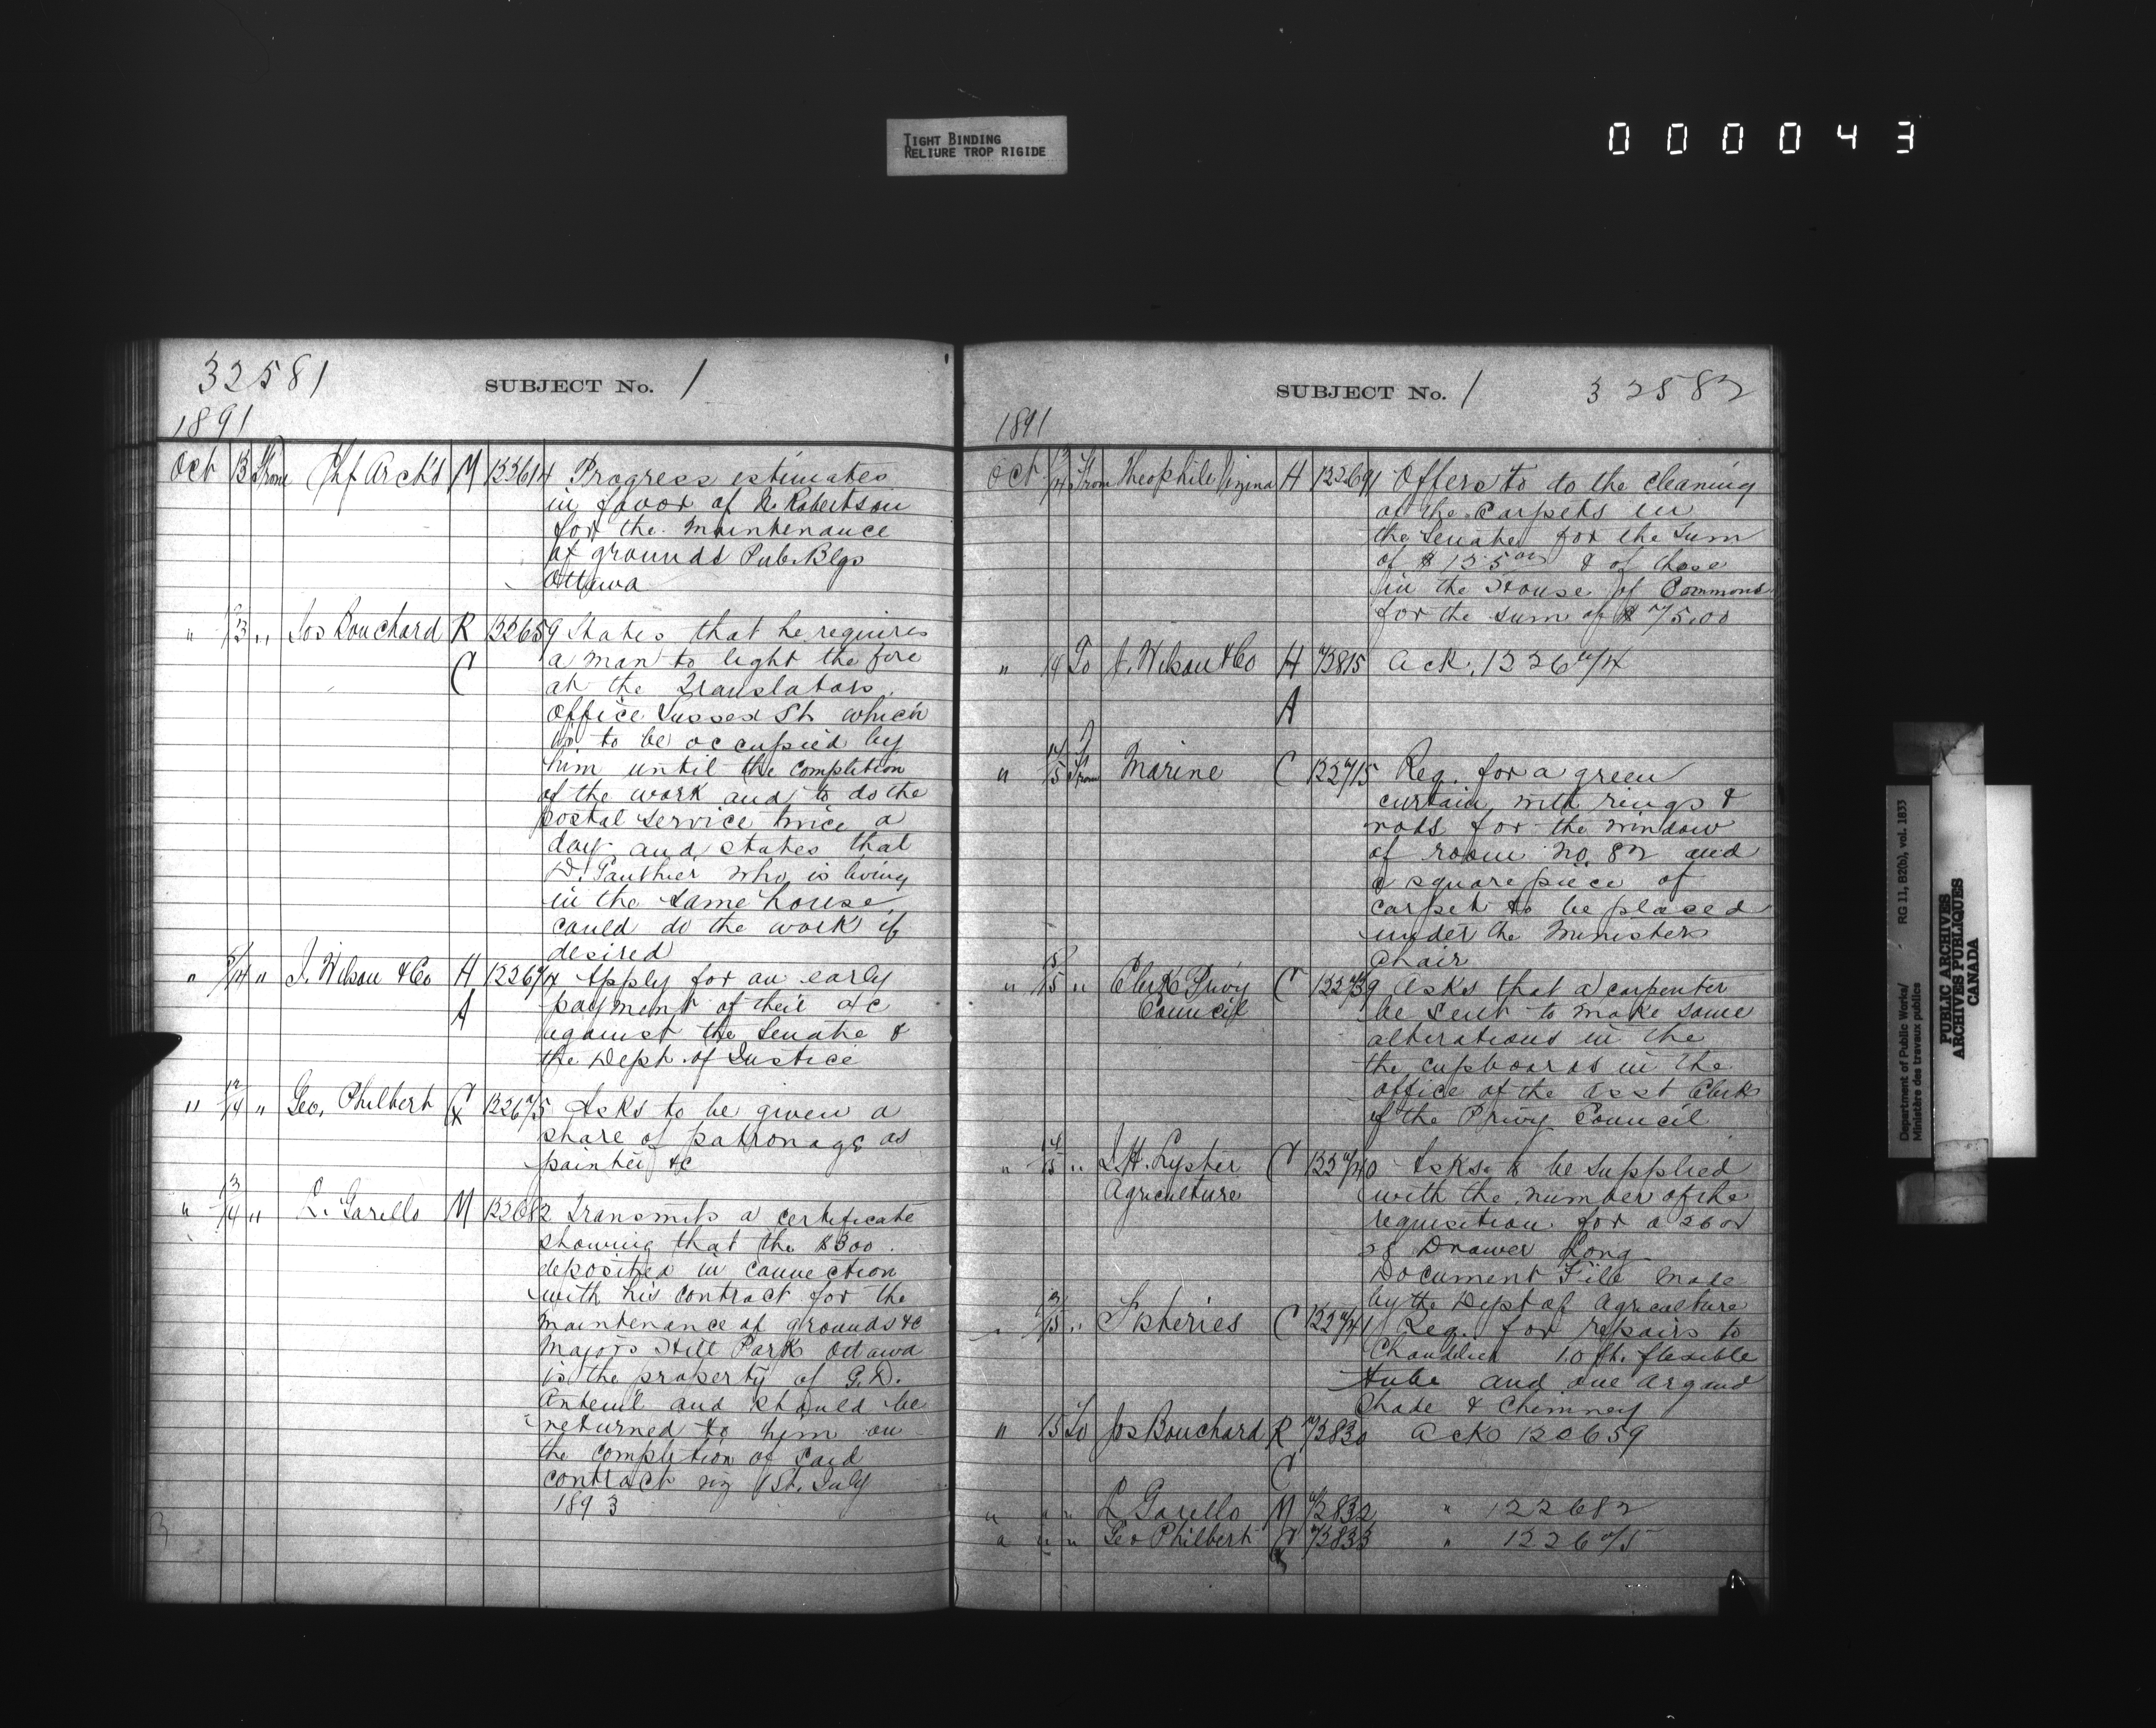 TIGHT BINDING
RELIURE TROP RIGIDE
000043
32581
SUBJECT No. 1
1891
Oct 13 From Chf Archt's M 122614 Progress estimates
in favor of N. Robertson
for the maintenance
of grounds Pub. Blgs
Ottawa
" 12/13 " Jos Bouchard R 122659 States that he requires
C a man to light the fire
at the Translators
office Sussex St. which
is to be occupied by
him until the completion
of the work and to do the
postal service twice a
day and states that
D. Gauthier who is living
in the same house
could do the work if
desired
" 5/14 " J. Wilson & Co H 122674 Apply for an early
A payment of their a/c
against the Senate &
the Dept. of Justice
" 12/14 " Geo. Philbert C 122675 Asks to be given a
share of patronage as
painter &c
" 13/14 " L. Garello M 122682 Transmits a certificate
showing that the $300
deposited in connection
with his contract for the
maintenance of grounds &c
Majors Hill Park Ottawa
is the property of G.D.
Anteuil and should be
returned to him on
the completion of said
contract viz 1st. July
1893
SUBJECT No. 1
32582
1891
Oct 13/14 From Theophile H 122691 Offers to do the cleaning
of the Carpets in
the Senate for the sum
of $125 00 & of those
in the House of Commons
for the sum of $75.00
" 14 To J. Wilson & Co H 72815 Ack. 122674
A
" 14/15 From Marine C 122715 Req. for a green
curtain with rings &
rods for the window
of room no. 82 and
a square piece of
carpet to be placed
under the Ministers
Chair
" 15/15 " Clerk Privy C 122739 Asks that a carpenter
Council be sent to make some
alterations in the
the cupboards in the
office of the Asst Clerk
of the Privy Council
" 14/15 " J.H. Lyster C 122740 Asks to be supplied
Agriculture with the number of the
requisition for a 26 or
28 Drawer Long
Document File made
by the Dept of Agriculture
" 13/15 " Fisheries C 122741 Req. for repairs to
Chandelier 10 ft. flexible
tube and one Argand
Shade & Chimney
" 15 To Jos Bouchard R 72830 Ack 120659
C
" " " L Garello M 72832 " 122682
" " " Geo Philbert C 72833 " 122675
Department of Public Works/ RG 11, B2(b), vol. 1833
Ministère des travaux publics
PUBLIC ARCHIVES
ARCHIVES PUBLIQUES
CANADA